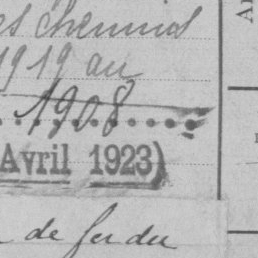 es chemins
1919 au
1908
Avril 1923)
de fer du